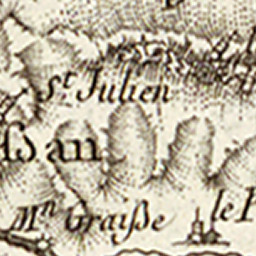 St. Julien
ſsan
Mn Graiſse
le P